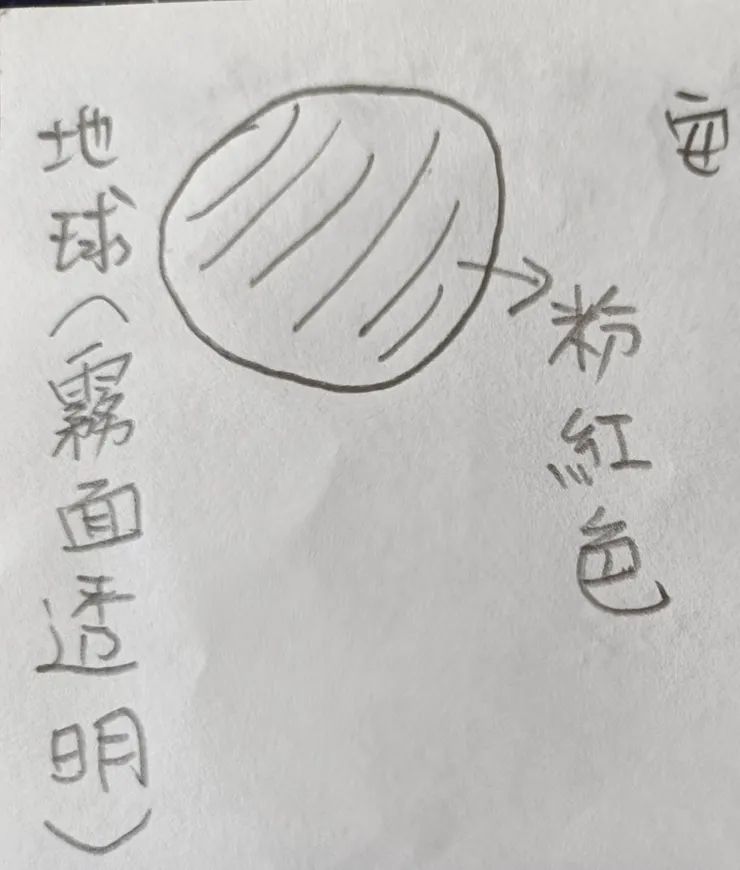 粉紅色
地球(霧面透明)